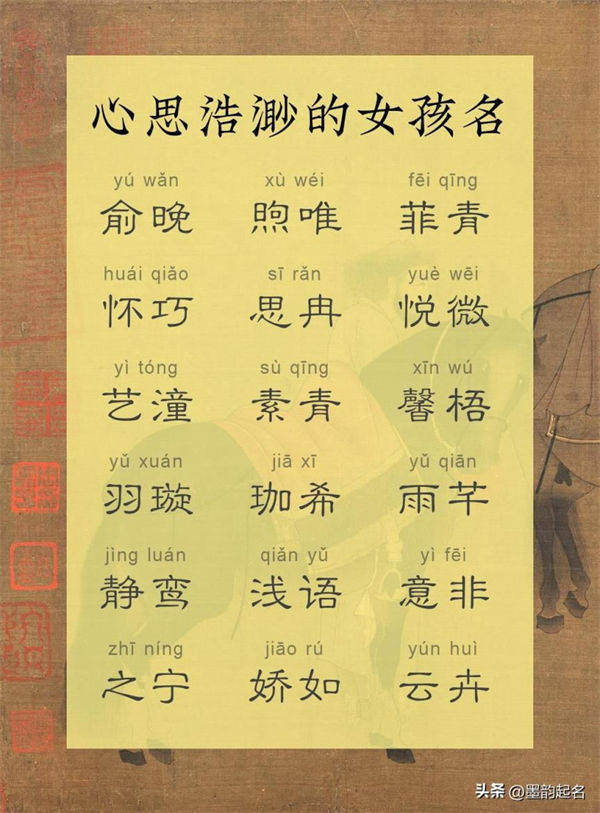 心思浩渺的女孩名
yú wǎn xù wéi fēi qīng
俞晚 煦唯 菲青
huái qiǎo sī rǎn yuè wēi
怀巧 思冉 悦微
yì tóng sù qīng xīn wú
艺潼 素青 馨梧
yǔ xuán jiā xī yǔ qiān
羽璇 珈希 雨芊
jìng luán qiǎn yǔ yì fēi
静鸾 浅语 意非
zhī níng jiāo rú yún huì
之宁 娇如 云卉
头条 @墨韵起名